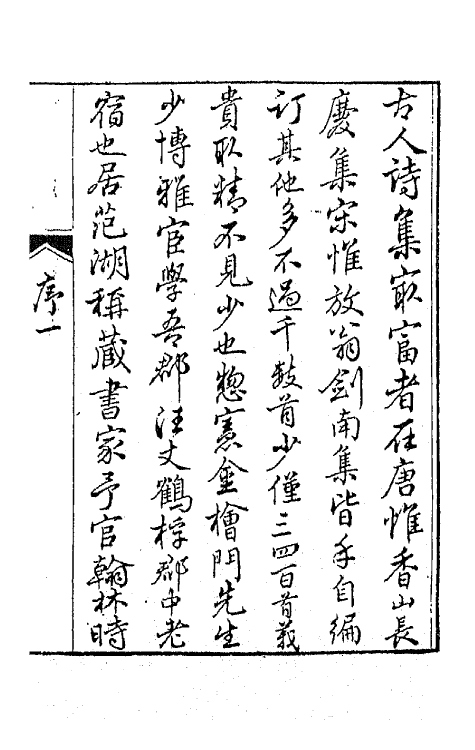 古人詩集㝡富者在唐惟香山長
慶集宋惟放翁劍南集皆手自編
訂其他多不過千數首少僅三四百首義
貴取精不見少也總憲金檜門先生
少博雅宦學吾郡汪丈鶴桴郡中老
宿也居范湖稱藏書家予官翰林時
序一